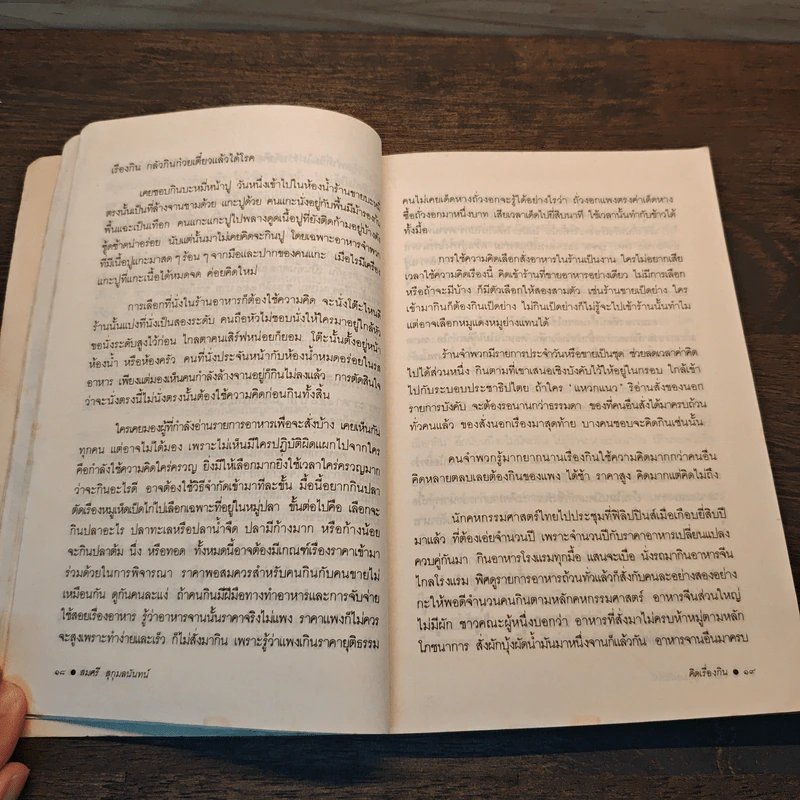 เรื่องกิน กลัวกินก๋วยเตี๋ยวแล้วได้โรค
เคยชอบกินบะหมี่หน้าปู วันหนึ่งเข้าไปในห้องน้ำร้านขายบะหมี่
ตรงนั้นเป็นที่ล้างจานชามด้วย แกะปูด้วย คนแกะนั่งอยู่กับพื้นมีม้ารองนั่ง
พื้นแฉะเป็นเทือก คนแกะแกะปูไปพลางดูดเนื้อปูที่ยังติดก้ามอยู่บ้างดัง
ซู้ดซ้าดน่าอร่อย นับแต่นั้นมาไม่เคยคิดจะกินปู โดยเฉพาะอาหารจำพวก
ที่มีเนื้อปูแกะมาสดๆ ร้อนๆ จากมือและปากของคนแกะ เมื่อไรมีเครื่อง
แกะปูที่แกะเนื้อได้หมดจด ค่อยคิดใหม่
การเลือกที่นั่งในร้านอาหารก็ต้องใช้ความคิด จะนั่งโต๊ะไหนมี
ร้านนั้นแบ่งที่นั่งเป็นสองระดับ คนถือหัวไม่ชอบนั่งให้ใครมาอยู่ใกล้หัว
ขอนั่งระดับสูงไว้ก่อน ไกลตาคนเสิร์ฟหน่อยก็ยอม โต๊ะนั้นตั้งอยู่หน้า
ห้องน้ำ หรือห้องครัว คนที่นั่งประจันหน้ากับห้องน้ำหมดอร่อยในรส
อาหาร เพียงแต่มองเห็นคนกำลังล้างจานอยู่ก็กินไม่ลงแล้ว การตัดสินใจ
ว่าจะนั่งตรงนี้ไม่นั่งตรงนั้นต้องใช้ความคิดก่อนกินทั้งสิ้น
ใครเคยมองผู้ที่กำลังอ่านรายการอาหารเพื่อจะสั่งบ้าง เคยเห็นกัน
ทุกคน แต่อาจไม่ได้มอง เพราะไม่เห็นมีใครปฏิบัติผิดแผกไปจากใคร
คือกำลังใช้ความคิดใคร่ครวญ ยิ่งมีให้เลือกมากยิ่งใช้เวลาใคร่ครวญมาก
ว่าจะกินอะไรดี อาจต้องใช้วิธีจำกัดเข้ามาทีละขั้น มื้อนี้อยากกินปลา
ตัดเรื่องหมูเห็ดเป็ดไก่ไปเลือกเฉพาะที่อยู่ในหมู่ปลา ขั้นต่อไปคือ เลือกจะ
กินปลาอะไร ปลาทะเลหรือปลาน้ำจืด ปลามีก้างมาก หรือก้างน้อย
จะกินปลาต้ม นึ่ง หรือทอด ทั้งหมดนี้อาจต้องมีเกณฑ์เรื่องราคาเข้ามา
ร่วมด้วยในการพิจารณา ราคาพอสมควรสำหรับคนกินกับคนขายไม่
เหมือนกัน ดูกันคนละแง่ ถ้าคนกินมีฝีมือทางทำอาหารและการจับจ่าย
ใช้สอยเรื่องอาหาร รู้ว่าอาหารจานนั้นราคาจริงไม่แพง ราคาแพงก็ไม่ควร
จะสูงเพราะทำง่ายและเร็ว ก็ไม่สั่งมากิน เพราะรู้ว่าแพงเกินราคายุติธรรม
๑๘ ● สมศรี สุกุมลนันทน์
คนไม่เคยเด็ดหางถั่วงอกจะรู้ได้อย่างไรว่า ถั่วงอกแพงตรงค่าเด็ดหาง
ซื้อถั่วงอกมาหนึ่งบาท เสียเวลาเด็ดไปยี่สิบนาที ใช้เวลานั้นทำกับข้าวได้
ทั้งมื้อ
การใช้ความคิดเลือกสั่งอาหารในร้านเป็นงาน ใครไม่อยากเสีย
เวลาใช้ความคิดเรื่องนี้ คิดเข้าร้านที่ขายอาหารอย่างเดียว ไม่มีการเลือก
หรือถ้าจะมีบ้าง ก็มีตัวเลือกให้สองสามตัว เช่นร้านขายเป็ดย่าง ใคร
เข้ามากินก็ต้องกินเป็ดย่าง ไม่กินเป็ดย่างก็ไม่รู้จะไปเข้าร้านนั้นทำไม
แต่อาจเลือกหมูแดงหมูย่างแทนได้
ร้านจำพวกมีรายการประจำวันหรือขายเป็นชุด ช่วยลดเวลาค่าคิด
ไปได้ส่วนหนึ่ง กินตามที่เขาเสนอเชิงบังคับไว้ให้อยู่ในกรอบ ใกล้เข้า
ไปกับระบอบประชาธิปไตย ถ้าใคร 'แหวกแนว' ริอ่านสั่งของนอก
รายการบังคับ จะต้องรอนานกว่าธรรมดา ของที่คนอื่นสั่งได้มาครบถ้วน
ทั่วคนแล้ว ของสั่งนอกเรื่องมาสุดท้าย บางคนชอบจะคิดกินเช่นนั้น
คนจำพวกรู้มากยากนานเรื่องกินใช้ความคิดมากกว่าคนอื่น
คิดหลายตลบเลยต้องกินของแพง ได้ช้า ราคาสูง คิดมากแต่คิดไม่ถึง
นักคหกรรมศาสตร์ไทยไปประชุมที่ฟิลิปปินส์เมื่อเกือบยี่สิบปี
มาแล้ว ที่ต้องเอ่ยจำนวนปี เพราะจำนวนปีกับราคาอาหารเปลี่ยนแปลง
ควบคู่กันมา กินอาหารโรงแรมทุกมื้อ แสนจะเบื่อ นั่งรถมากินอาหารจีน
ไกลโรงแรม พิศดูรายการอาหารถ้วนทั่วแล้วก็สั่งกับคนละอย่างสองอย่าง
กะให้พอดีจำนวนคนกินตามหลักคหกรรมศาสตร์ อาหารจีนส่วนใหญ่
ไม่มีผัก ชาวคณะผู้หนึ่งบอกว่า อาหารที่สั่งมาไม่ครบห้าหมู่ตามหลัก
โภชนาการ สั่งผักบุ้งผัดน้ำมันมาหนึ่งจานก็แล้วกัน อาหารจานอื่นมาครบ
คิดเรื่องกิน ● ๑๙